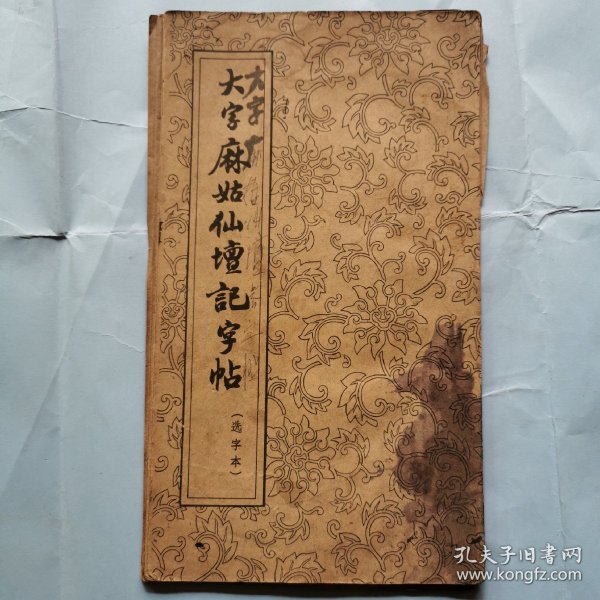 大字麻姑仙壇記字帖
(选字本)
大字
孔夫子旧書网
www.kongfz.com